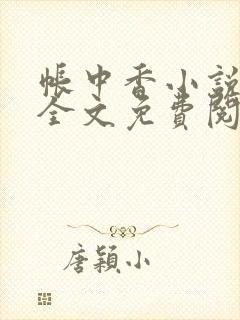 帳中香小說
全文免費閱
唐穎小